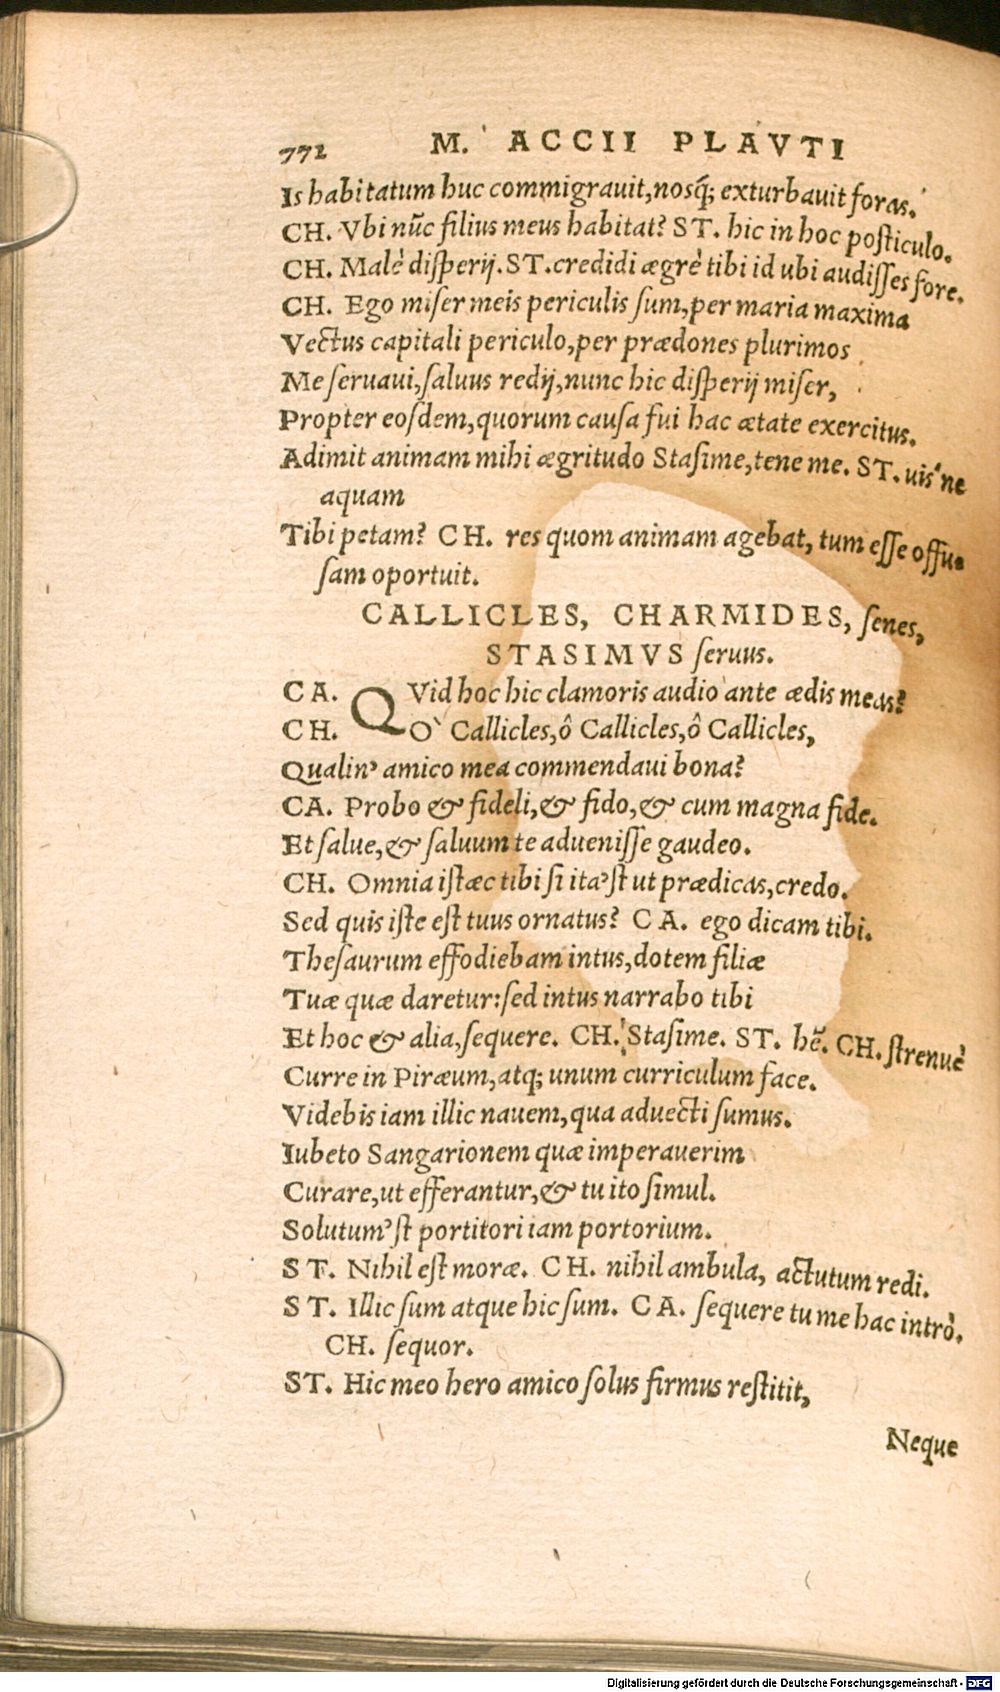 772 M. ACCII PLAVTI
Is habitatum huc commigrauit, nosq́; exturbauit foras.
CH. Vbi nūc filius meus habitat? ST. hic in hoc posticulo.
CH. Malè disperij. ST. credidi ægrè tibi id ubi audisses fore.
CH. Ego miser meis periculis sum, per maria maxima
Vectus capitali periculo, per prædones plurimos
Me seruaui, saluus redij, nunc hic disperij miser,
Propter eosdem, quorum causa fui hac ætate exercitus.
Adimit animam mihi ægritudo Stasime, tene me. ST. uis'ne
aquam
Tibi petam? CH. res quom animam agebat, tum esse offu-
sam oportuit.
CALLICLES, CHARMIDES, senes,
STASIMVS seruus.
CA. QVid hoc hic clamoris audio ante ædis meas?
CH. O` Callicles, ô Callicles, ô Callicles,
Qualin' amico mea commendaui bona?
CA. Probo & fideli, & fido, & cum magna fide.
Et salue, & saluum te aduenisse gaudeo.
CH. Omnia istæc tibi si ita'st ut prædicas, credo.
Sed quis iste est tuus ornatus? CA. ego dicam tibi.
Thesaurum effodiebam intus, dotem filiæ
Tuæ quæ daretur: sed intus narrabo tibi
Et hoc & alia, sequere. CH. Stasime. ST. hē. CH. strenuè
Curre in Piræum, atq; unum curriculum face.
Videbis iam illic nauem, qua aduecti sumus.
Iubeto Sangarionem quæ imperauerim
Curare, ut efferantur, & tu ito simul.
Solutum'st portitori iam portorium.
ST. Nihil est moræ. CH. nihil ambula, actutum redi.
ST. Illic sum atque hic sum. CA. sequere tu me hac intrò.
CH. sequor.
ST. Hic meo hero amico solus firmus restitit,
Neque
Digitalisierung gefördert durch die Deutsche Forschungsgemeinschaft - DFG